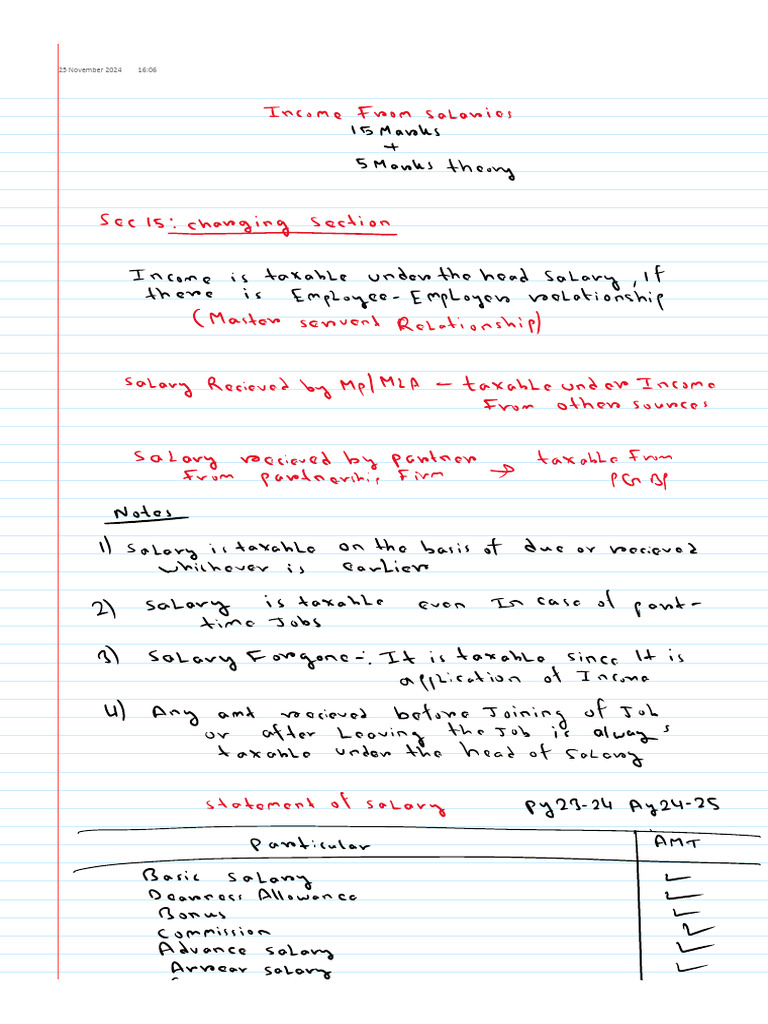 25 November 2024 16:06
Income From Salaries
15 Marks
+
5 Marks theory
Sec 15: charging section
Income is taxable under the head Salary, if
there is Employee-Employer relationship
(Master servent Relationship)
Salary Recieved by MP/MLA – taxable under Income
From other sources
Salary recieved by partner → taxable From
From partnership Firm PGBP
Notes
1) Salary is taxable on the basis of due or recieved
whichever is earlier
2) Salary is taxable even In case of part-
time Jobs
3) Salary Forgone-: It is taxable since It is
application of Income
4) Any amt recieved before Joining of Job
or after Leaving the Job is always
taxable under the head of Salary
Statement of Salary Py23-24 Ay24-25
Particular AMT
Basic Salary ✓
Dearness Allowance ✓
Bonus ✓
Commission ✓
Advance Salary ✓
Arrear Salary ✓